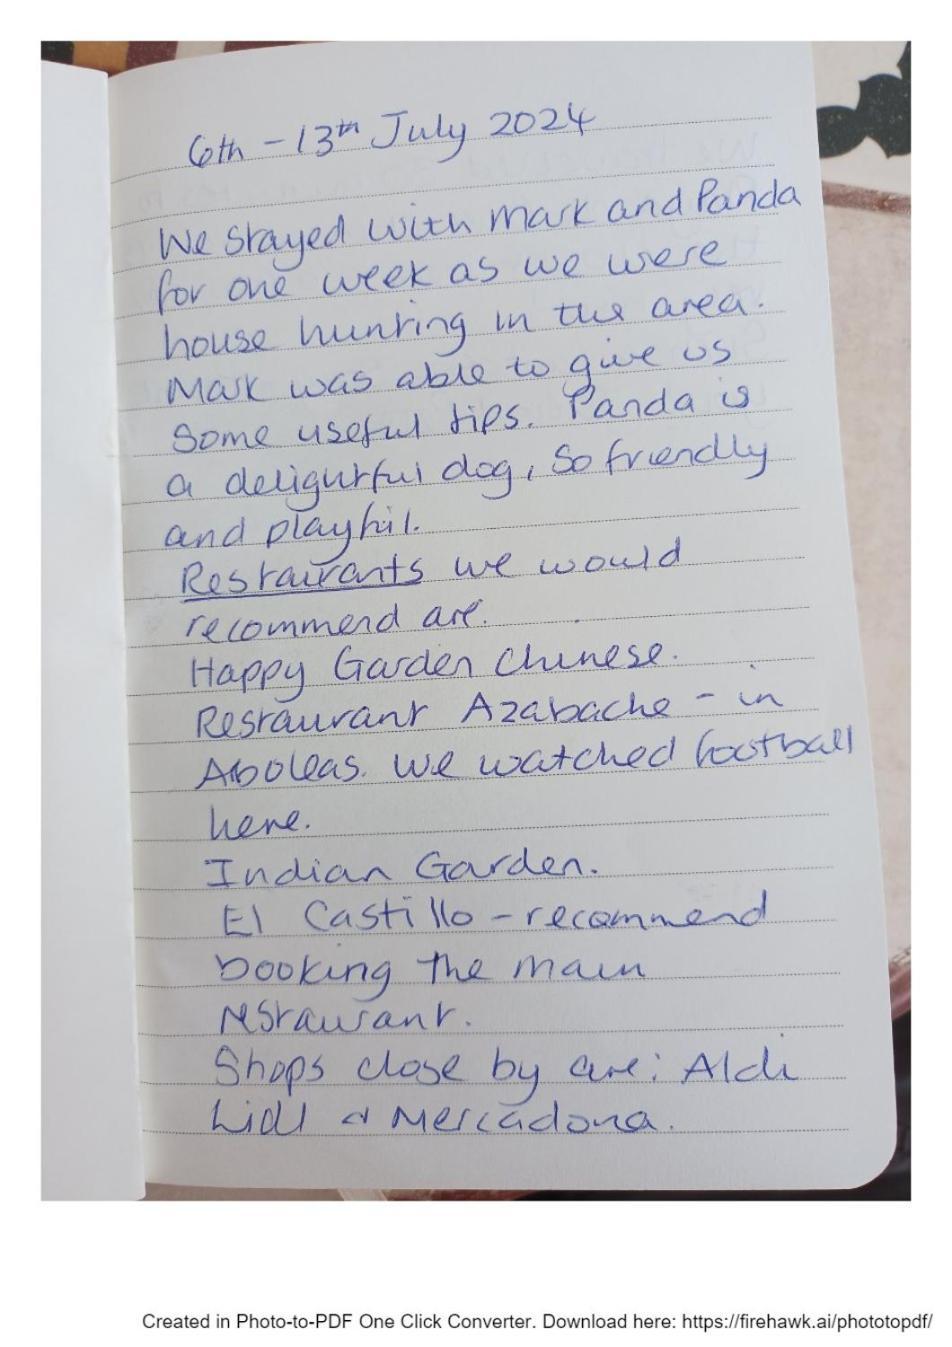 6th - 13th July 2024
We stayed with Mark and Panda
for one week as we were
house hunting in the area.
Mark was able to give us
some useful tips. Panda is
a delightful dog, so friendly
and playful.
Restaurants we would
recommend are.
Happy Garden Chinese.
Restaurant Azabache - in
Aboleas. We watched football
here.
Indian Garden.
El Castillo - recommend
booking the main
restaurant.
Shops close by are: Aldi
Lidl & Mercadona.
Created in Photo-to-PDF One Click Converter. Download here: https://firehawk.ai/phototopdf/